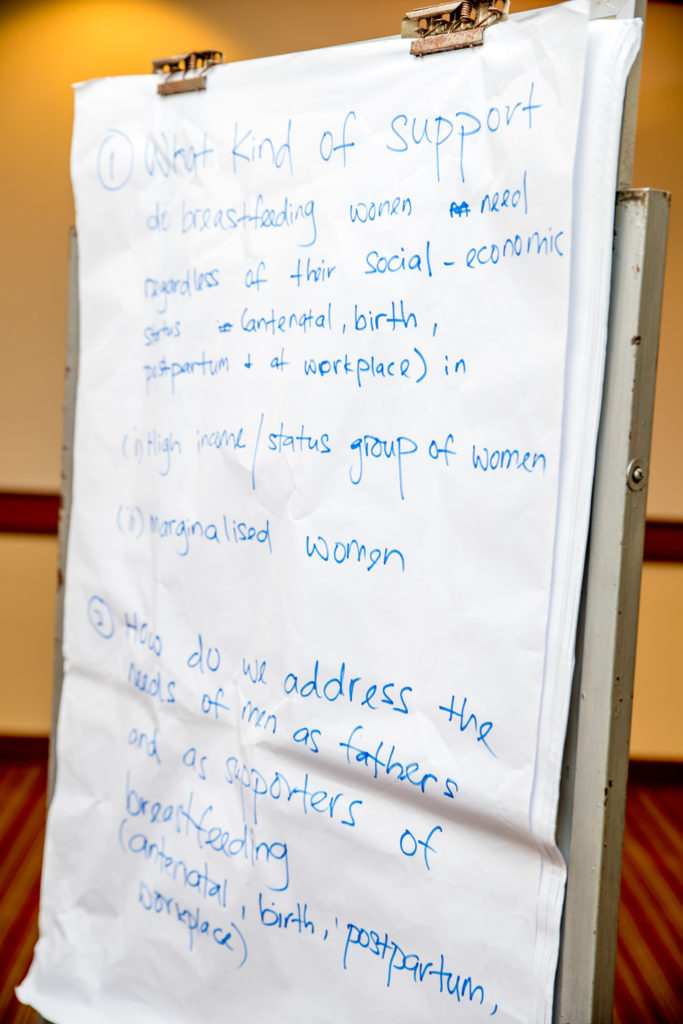 ① What kind of support
do breastfeeding women need
regardless of their social-economic
status (antenatal, birth,
postpartum + at workplace) in
(i) High income/status group of women
(ii) marginalised women
② How do we address the
needs of men as fathers
and as supporters of
breastfeeding
(antenatal, birth, postpartum,
workplace)